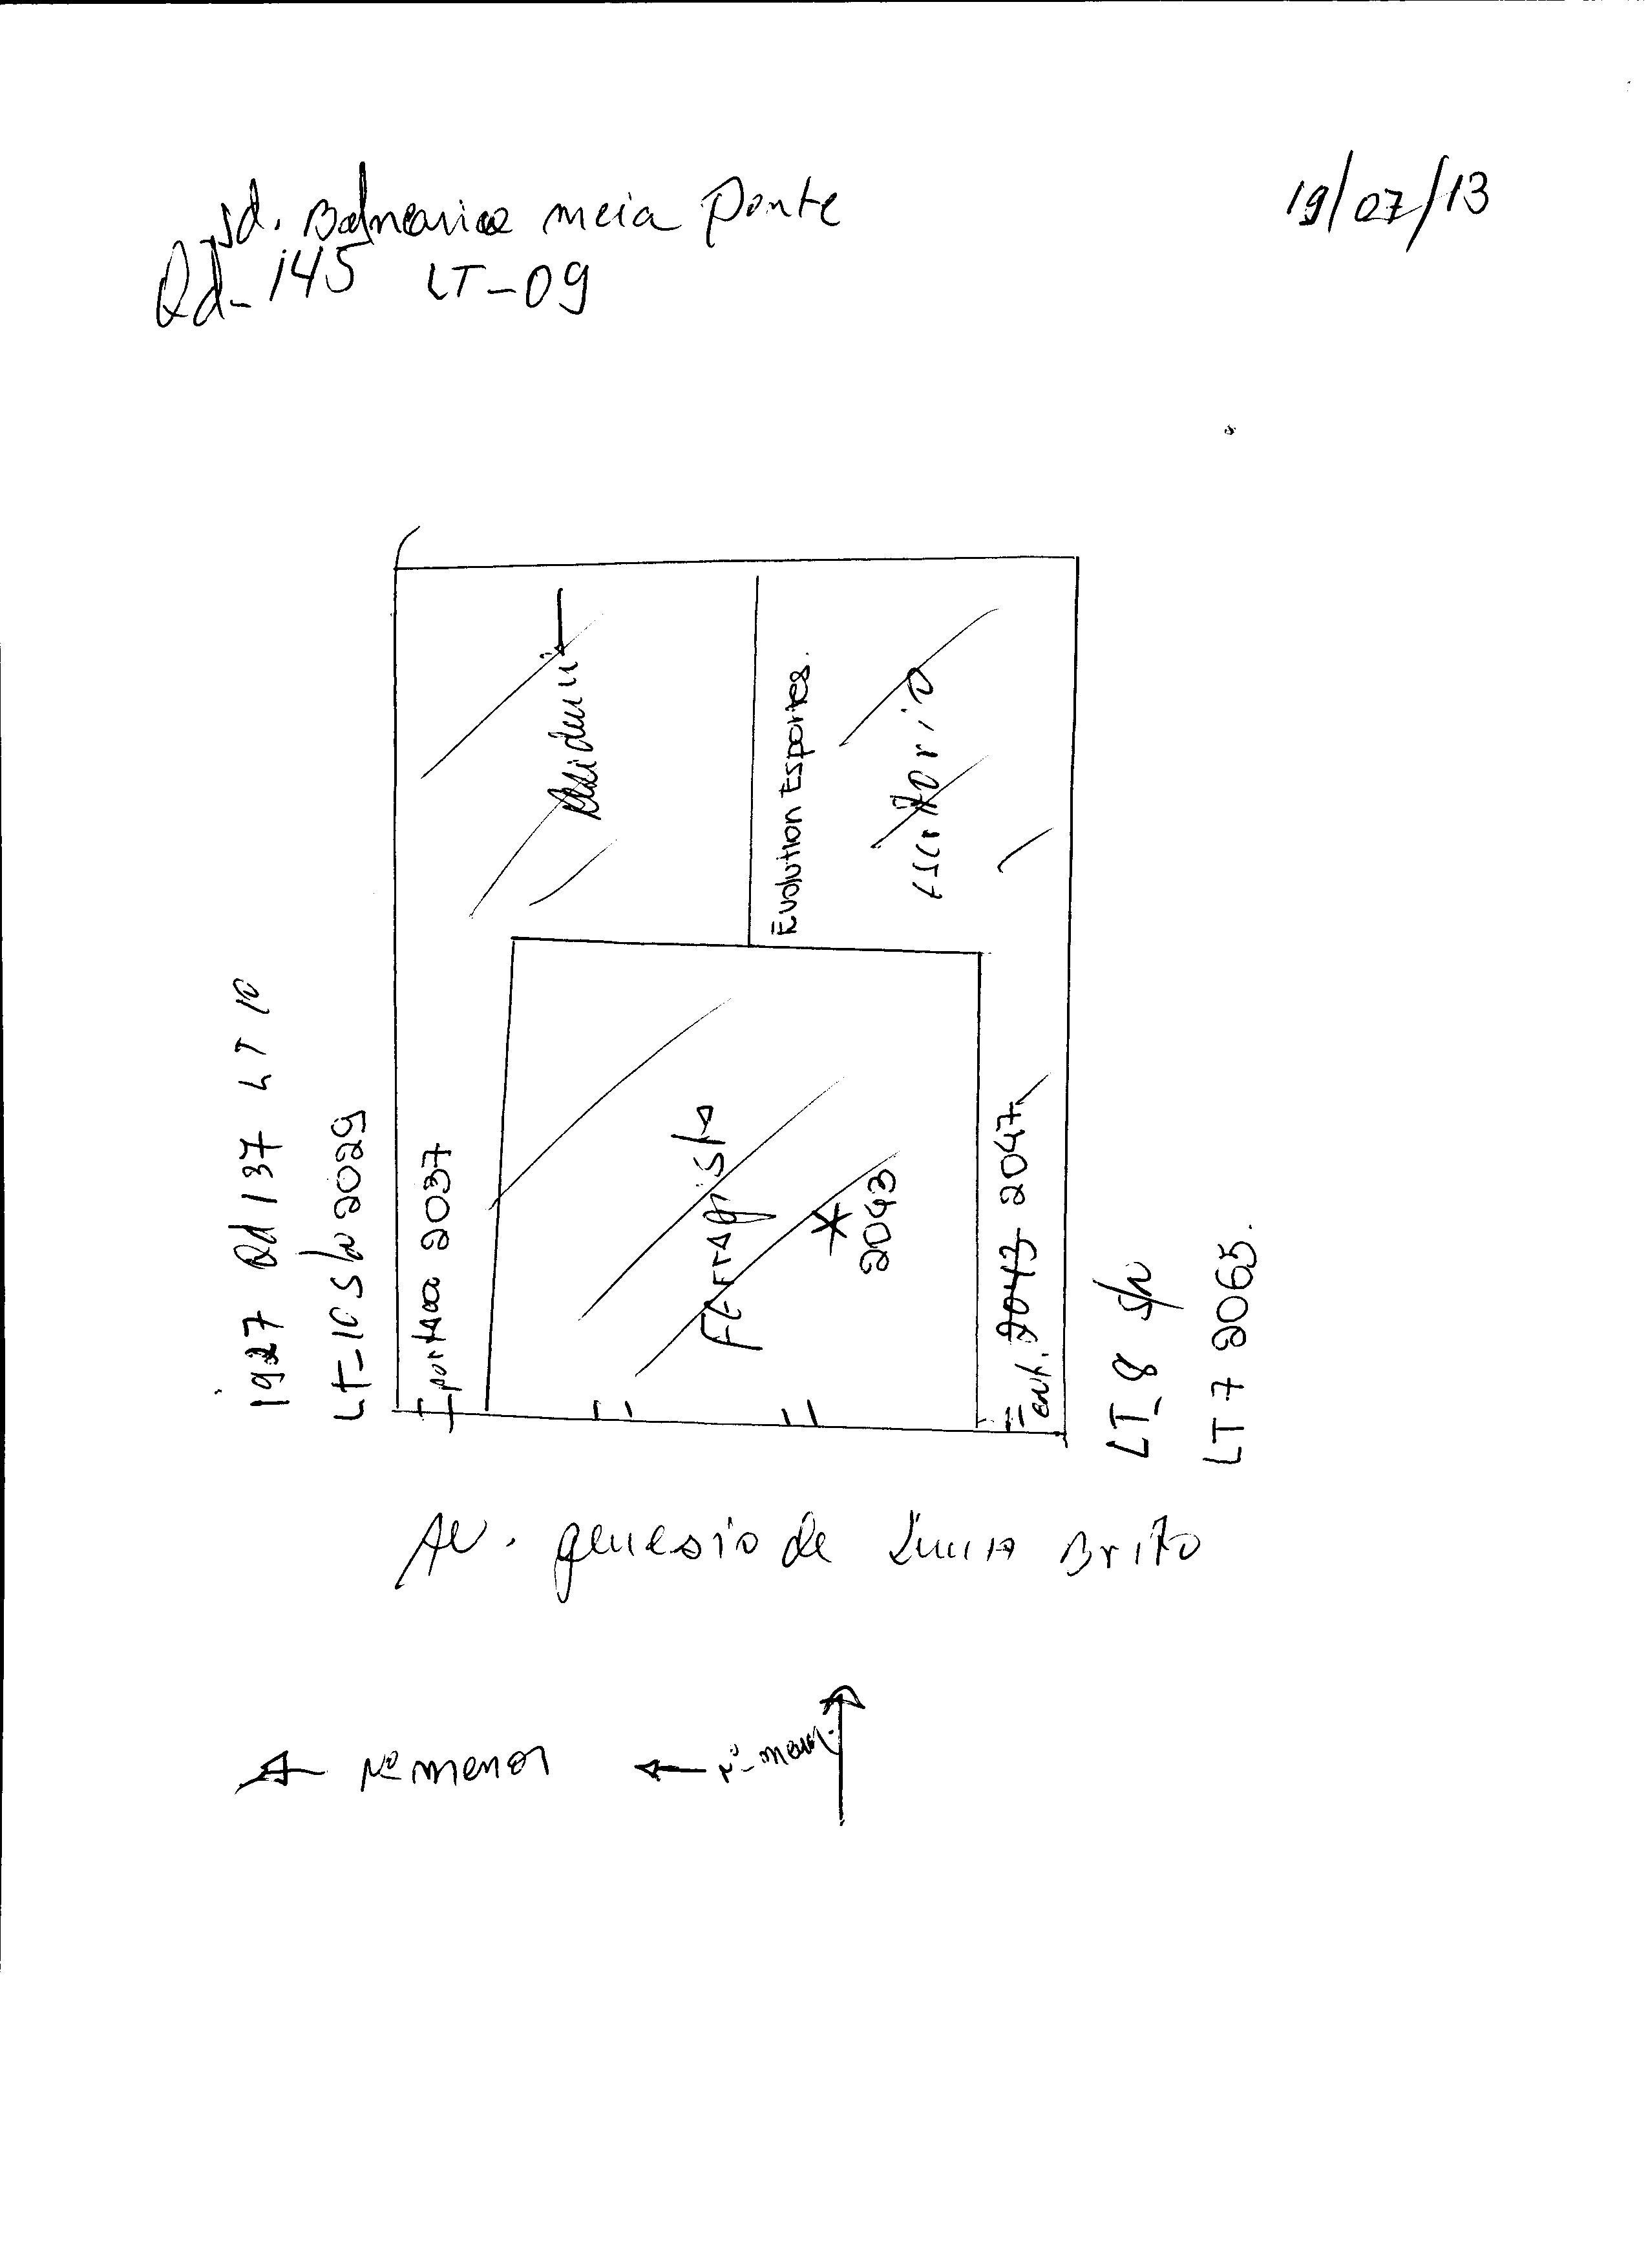 Jd. Balneario meia ponte
19/07/13
Qd-145 LT-09
Evolution Esportes.
escritorio
1927 Qd 137 LT 10
LT-10 S/N 2029
portão 2037
Ferragista
* 2043
2043 2047
LT-8 S/N
LT 7 2065.
Av. genesio de Lima Brito
Nº menor